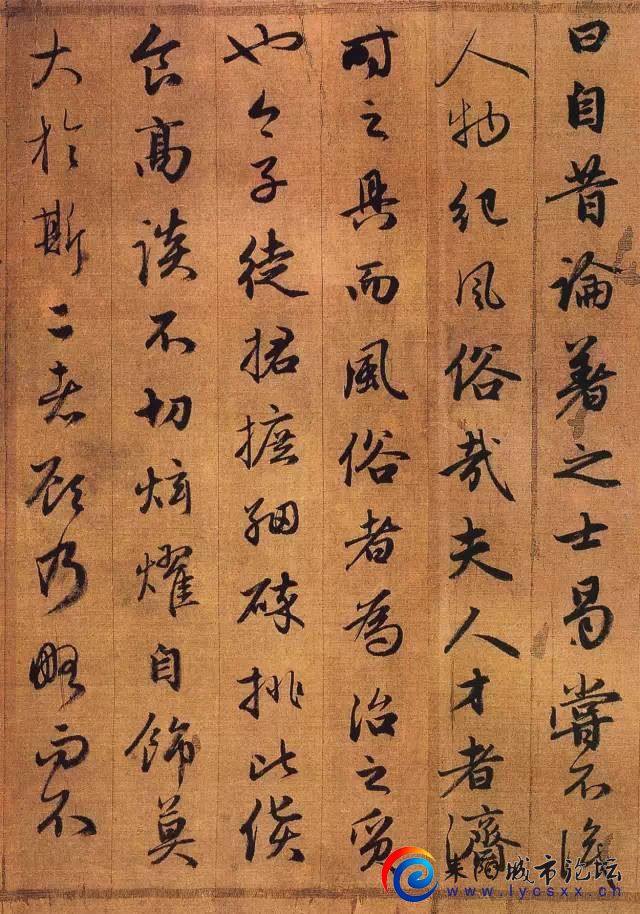 曰自昔論著之士曷嘗不
人物紀風俗哉夫人才者濟
時之具而風俗者為治之
也今子徒捃摭細碎排比
食高談不切炫耀自飾莫
大於斯二者顧乃略而不
城市论坛
www.lycsxx.cn